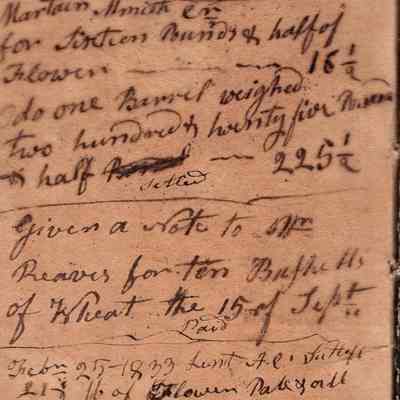 Martain Smith Cr
for Sixteen Pounds & half of
Flower — — — 16½
do one Barrel weighed
two hundred & twenty five Pound
& half — 225½
Settled
Given a Note to Mr
Reaves for ten Bushells
of Wheat the 15 of Sept
Paid
Feby 25-1833 Lent
lb of Flower